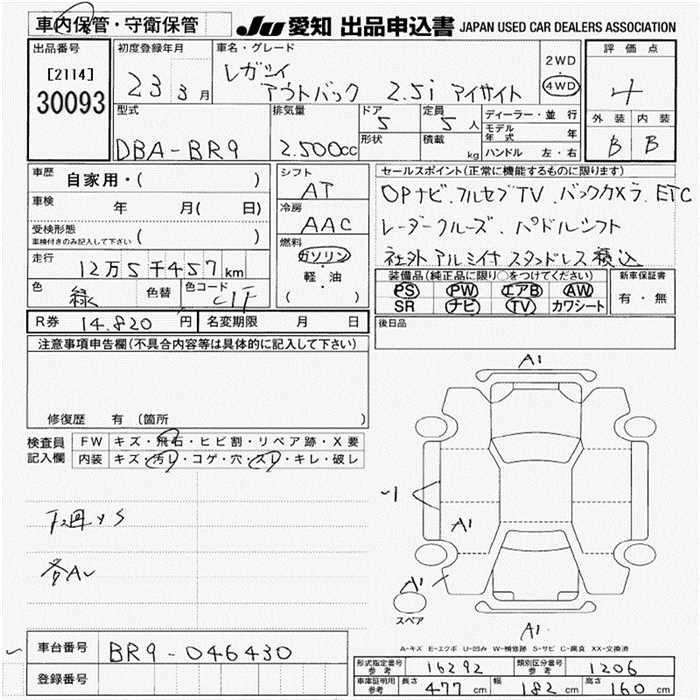 車内保管・守衛保管
JU 愛知 出品申込書 JAPAN USED CAR DEALERS ASSOCIATION
出品番号
[2114]
30093
初度登録年月
23 3月
車名・グレード
レガシィ
アウトバック 2.5i アイサイト
2WD
・
4WD
評価点
4
外装 内装
B B
型式
DBA-BR9
排気量
2.500cc
ドア
5
形状
定員
5人
積載
kg
ディーラー・並行
モデル年式 年
ハンドル 左・右
車歴 自家用・( )
車検 年 月( 日)
受検形態
車検付きのみ記入して下さい ( )
走行 12万5千457km
色 緑 色替 色コード
シフト
AT
冷房
AAC
燃料
ガソリン
・
軽・油
( )
セールスポイント(正常に機能するものに限ります)
OPナビ.フルセグTV.バックカメラ.ETC
レーダークルーズ.パドルシフト
社外アルミ付スタッドレス積込
装備品(純正品に限り○をつけてください)
PS PW エアB AW
SR ナビ TV カワシート
新車保証書
有・無
R券 14.820円 名変期限 月 日
後日品
注意事項申告欄(不具合内容等は具体的に記入して下さい)
修復歴 有(箇所 )
検査員
記入欄
FW キズ・飛石・ヒビ割・リペア跡・X要
内装 キズ・汚レ・コゲ・穴・スレ・キレ・破レ
A1
A1
A1
スペア
A1.
A-キズ E-エクボ U-凹み W-補修跡 S-サビ C-腐食 XX-交換済
車台番号 BR9-046430
登録番号
形式指定番号
参考
16292
類別区分番号
参考
1206
車庫証明用
参考
長さ 477cm 幅 182cm 高さ 160cm